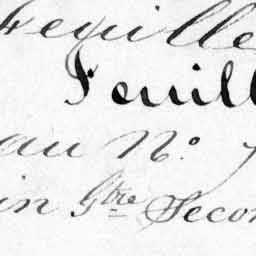 feuille
Feuill
au No. 7
in 9bre Secon